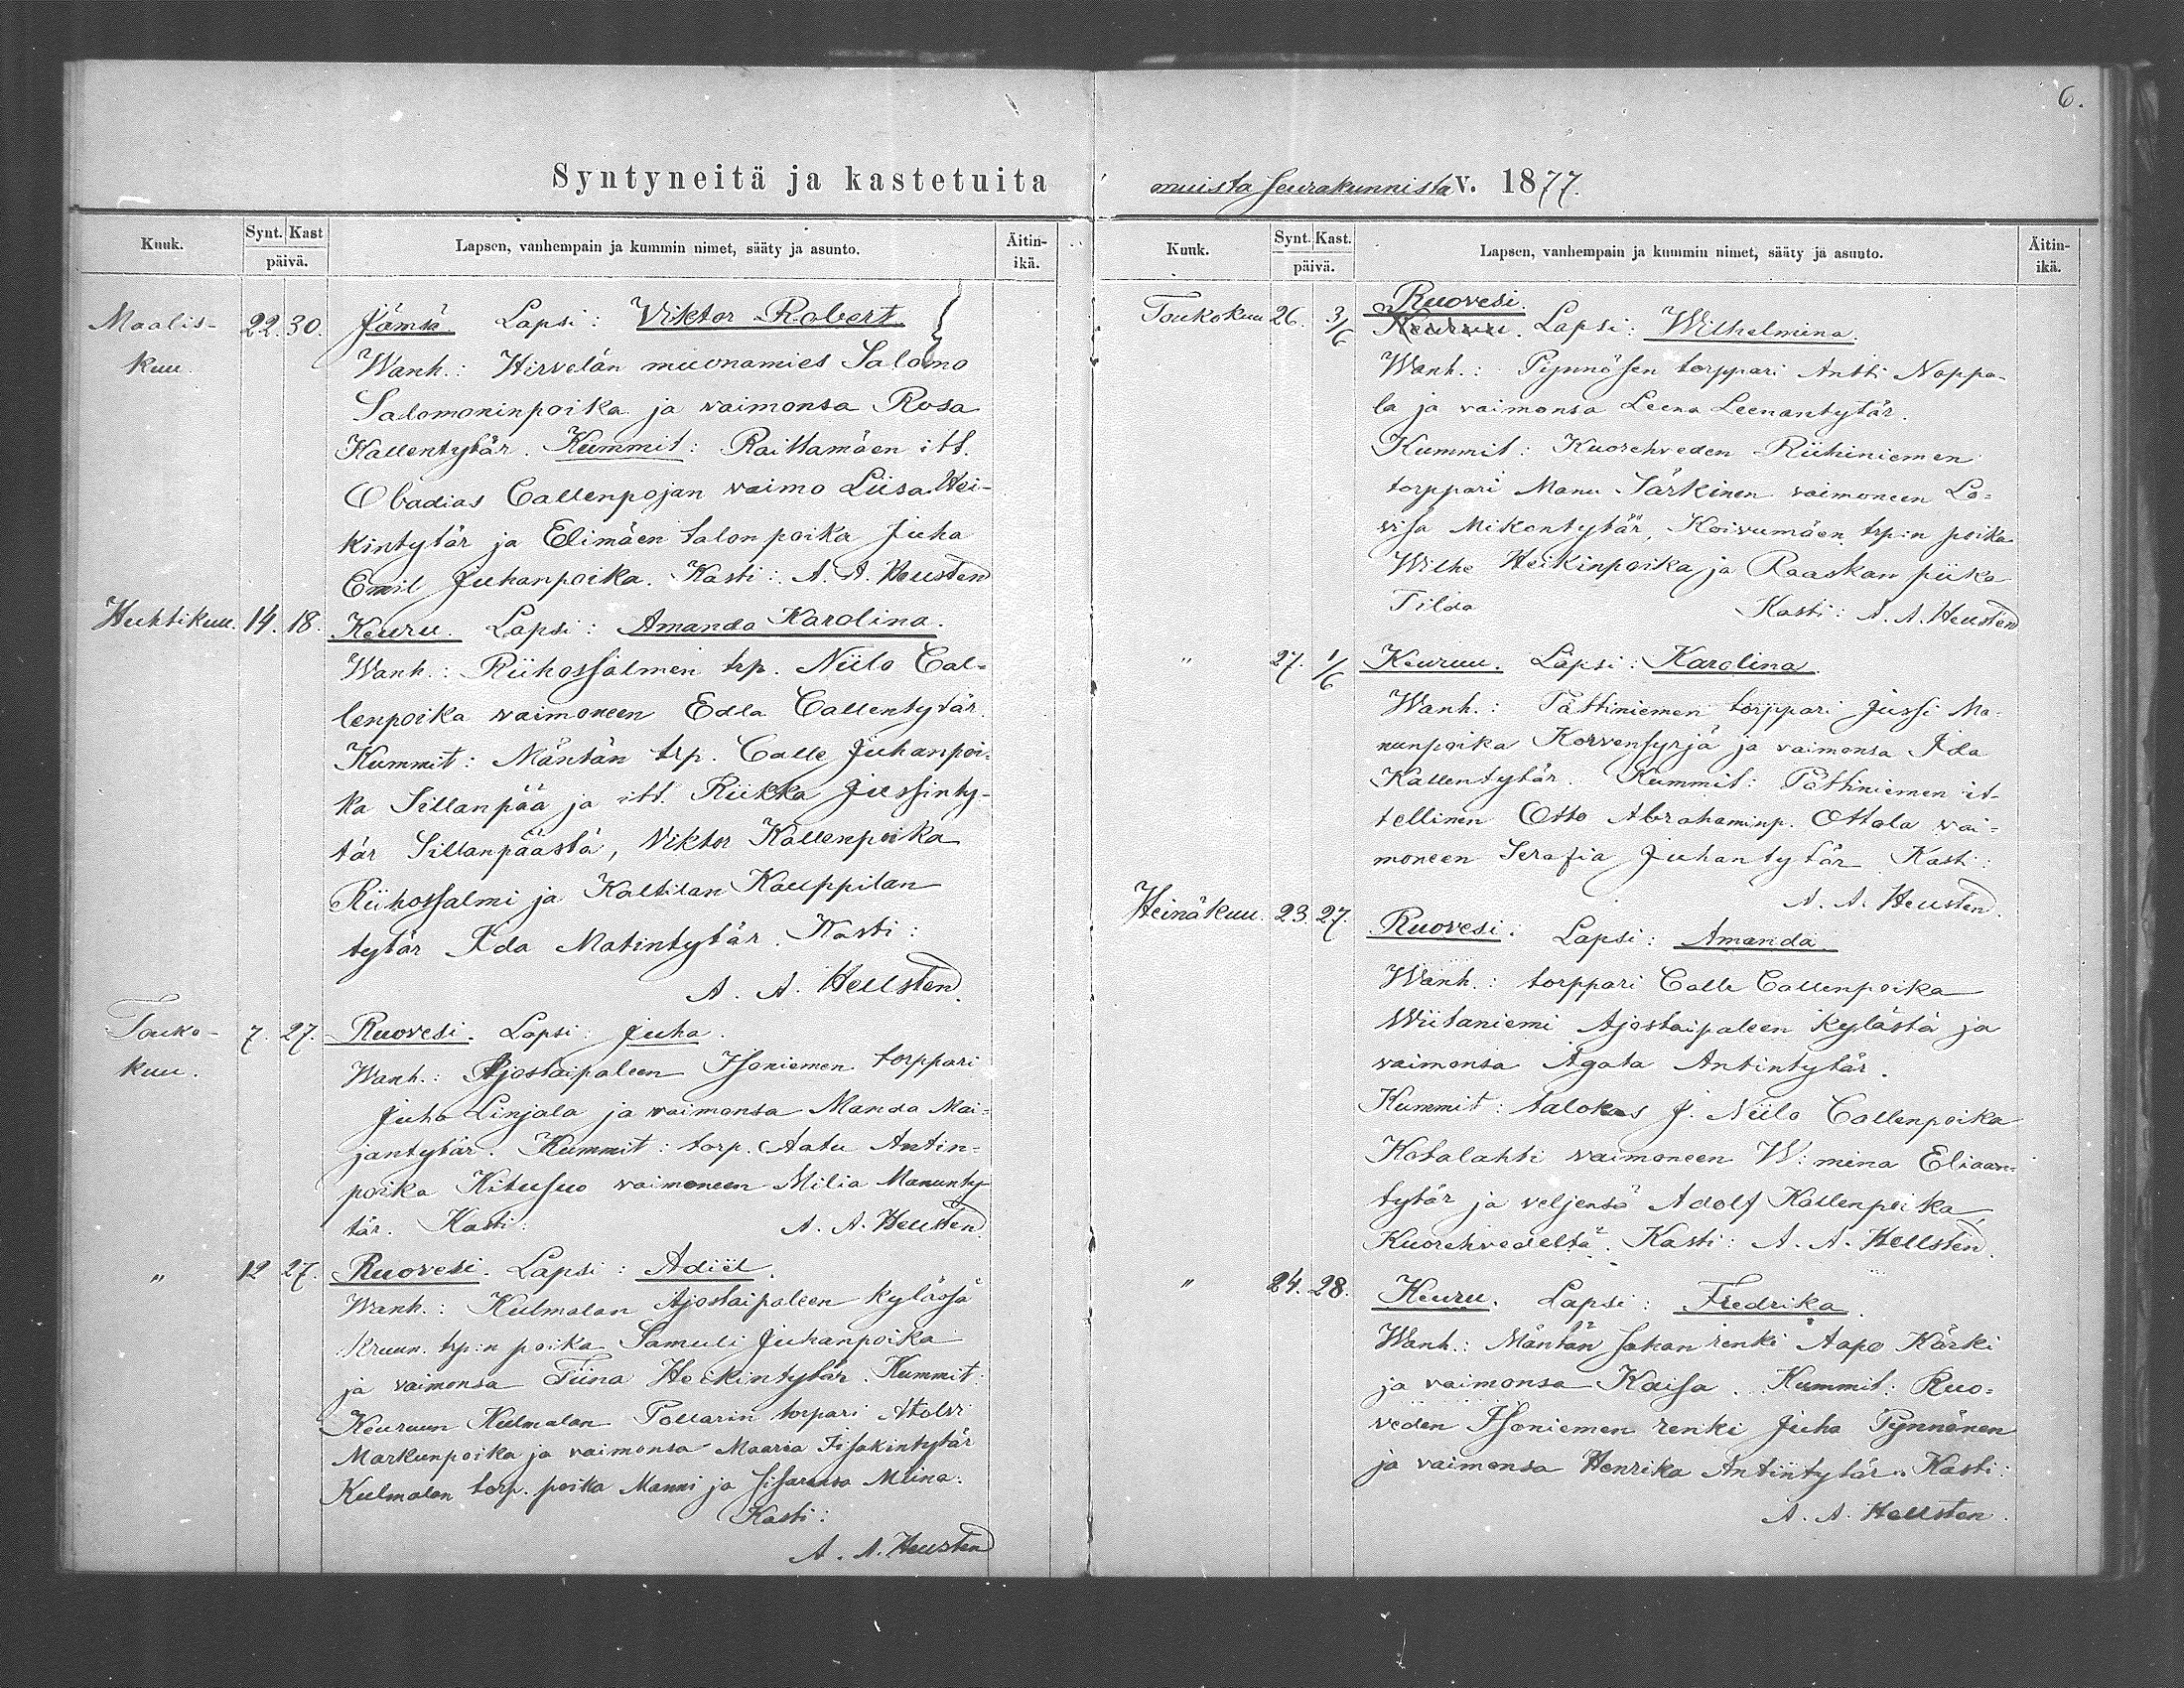 6.
Syntyneitä ja kastetuita muista seurakunnista v. 1877.
Kuuk. Synt. Kast päivä. Lapsen, vanhempain ja kummin nimet, sääty ja asunto. Äitin-ikä.
Maalis- 22. 30. Jämsä Lapsi: Viktor Robert
kuu. Wanh.: Hirvelän muonamies Salomo
Salomoninpoika ja vaimonsa Rosa
Kallentytär. Kummit: Raittamäen itt.
Obadias Callenpojan vaimo Liisa Hei-
kintytär ja Elimäen talonpoika Juha
Emil Juhanpoika. Kasti: A. A. Hellsten
Huhtikuu. 14. 18. Keuru. Lapsi: Amanda Karolina.
Wanh.: Riihossalmen trp. Niilo Cal-
lenpoika vaimoneen Edla Callentytär.
Kummit: Mäntän trp. Calle Juhanpoi-
ka Sillanpää ja itt. Riikka Jussinty-
tär Sillanpäästä, Viktor Kallenpoika
Riihossalmi ja Kaltilan Kauppilan
tytär Ida Matintytär. Kasti:
A. A. Hellsten.
Touko- 7. 27. Ruovesi. Lapsi: Juha.
kuu. Wanh.: Ajostaipaleen Isoniemen torppari
Juha Linjala ja vaimonsa Manda Mai-
jantytär. Kummit: torp. Aatu Antin-
poika Kitusuo vaimoneen Milia Manunty-
tär. Kasti: A. A. Hellsten
" 12 27. Ruovesi. Lapsi: Adiil.
Wanh.: Kulmalan Ajostaipaleen kylässä
kruun. trp:n poika Samuli Juhanpoika
ja vaimonsa Tiina Heikintytär. Kummit:
Keuruun Kulmalan Pollarin torpari
Markunpoika ja vaimonsa Maaria Iisakintytär
Kulmalan torp. poika Manni ja sisarensa Miina.
Kasti:
A. A. Hellsten
Kuuk. Synt. Kast. päivä. Lapsen, vanhempain ja kummin nimet, sääty ja asunto. Äitin-ikä.
Ruovesi.
Toukokuu 26. 3/6 Keuruu. Lapsi: Wilhelmina.
Wanh.: Pynnösen torppari Antti Noppa-
la ja vaimonsa Leena Leenantytär.
Kummit: Kuorehveden Riihiniemen
torppari Manu Särkinen vaimoneen Lo-
visa Mikontytär, Koivumäen trp:n poika
Wilhe Heikinpoika ja Raaskan piika
Tilda Kasti: A. A. Hellsten
" 27. 1/6 Keuruu. Lapsi: Karolina.
Wanh.: Pättiniemen torppari Jussi Ma-
nunpoika Korvensyrjä ja vaimonsa Ida
Kallentytär. Kummit: Pättiniemen it-
tellinen Otto Abrahaminp. Ottala vai-
moneen Serafia Juhantytär Kasti:
A. A. Hellsten.
Heinäkuu. 23. 27. Ruovesi. Lapsi: Amanda.
Wanh.: torppari Calle Callenpoika
Wiitaniemi Ajostaipaleen kylästä ja
vaimonsa Agata Antintytär.
Kummit: talokas J. Niilo Callenpoika
Kotalahti vaimoneen W:mina Eliaan-
tytär ja veljensä Adolf Kallenpoika,
Kuorehvedeltä. Kasti: A. A. Hellsten.
" 24. 28. Keuru. Lapsi: Fredrika.
Wanh.: Mäntän sahan renki Aapo Kärki
ja vaimonsa Kaisa. Kummit: Ruo-
veden Isoniemen renki Juha Pynnönen
ja vaimonsa Henrika Antintytär. Kasti:
A. A. Hellsten.